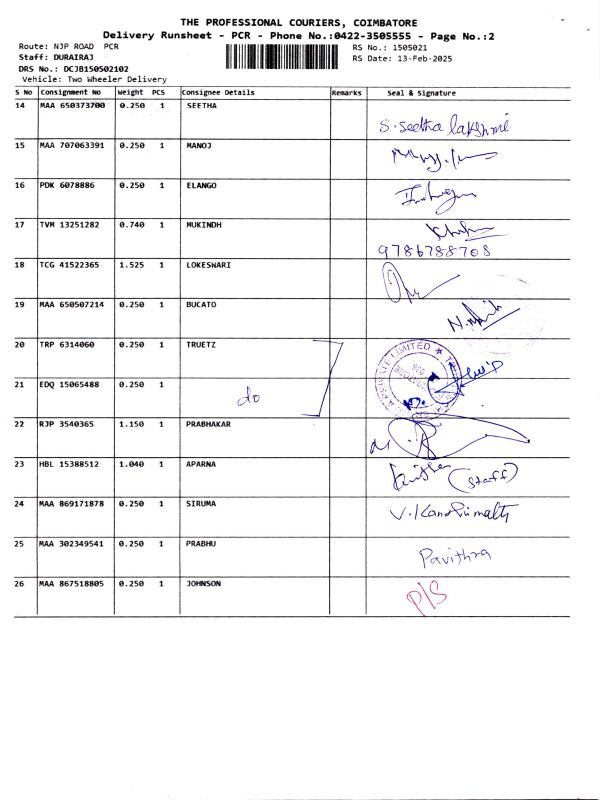 THE PROFESSIONAL COURIERS, COIMBATORE
Delivery Runsheet - PCR - Phone No.:0422-3505555 - Page No.:2
Route: NJP ROAD PCR RS No.: 1505021
Staff: DURAIRAJ RS Date: 13-Feb-2025
DRS No.: DCJB150502102
Vehicle: Two Wheeler Delivery
S No Consignment No Weight PCS Consignee Details Remarks Seal & Signature
14 MAA 650373700 0.250 1 SEETHA
S. Seetha lakshmi
15 MAA 707063391 0.250 1 MANOJ
16 PDK 6078886 0.250 1 ELANGO
17 TVM 13251282 0.740 1 MUKINDH
9786788708
18 TCG 41522365 1.525 1 LOKESWARI
19 MAA 650507214 0.250 1 BUCATO
20 TRP 6314060 0.250 1 TRUETZ
PRIVATE LIMITED
21 EDQ 15065488 0.250 1 do
22 RJP 3540365 1.150 1 PRABHAKAR
23 HBL 15388512 1.040 1 APARNA
(Staff)
24 MAA 869171878 0.250 1 SIRUMA
25 MAA 302349541 0.250 1 PRABHU
Pavithra
26 MAA 867518805 0.250 1 JOHNSON
P/S